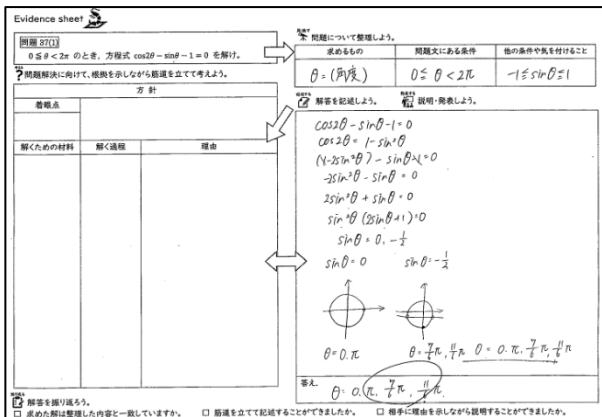 Evidence sheet
問題 37(1)
0≦θ<2π のとき、方程式 cos2θ−sinθ−1=0 を解け。
問題解決に向けて、根拠を示しながら筋道を立てて考えよう。
方 針
着眼点
解くための材料 解く過程 理由
問題について整理しよう。
求めるもの 問題文にある条件 他の条件や気を付けること
θ=(角度) 0≦θ<2π −1≦sinθ≦1
解答を記述しよう。 説明・発表しよう。
cos2θ−sinθ−1=0
cos2θ=1−sin²θ
(1−2sin²θ)−sinθ−1=0
−2sin²θ−sinθ=0
2sin²θ+sinθ=0
sinθ(2sinθ+1)=0
sinθ=0, −1/2
sinθ=0 sinθ=−1/2
θ=0.π θ=7/6π, 11/6π θ=0.π, 7/6π, 11/6π
答え.
θ=0.π, 7/6π, 11/6π
解答を振り返ろう。
□ 求めた解は整理した内容と一致していますか。 □ 筋道を立てて記述することができましたか。 □ 相手に理由を示しながら説明することができましたか。